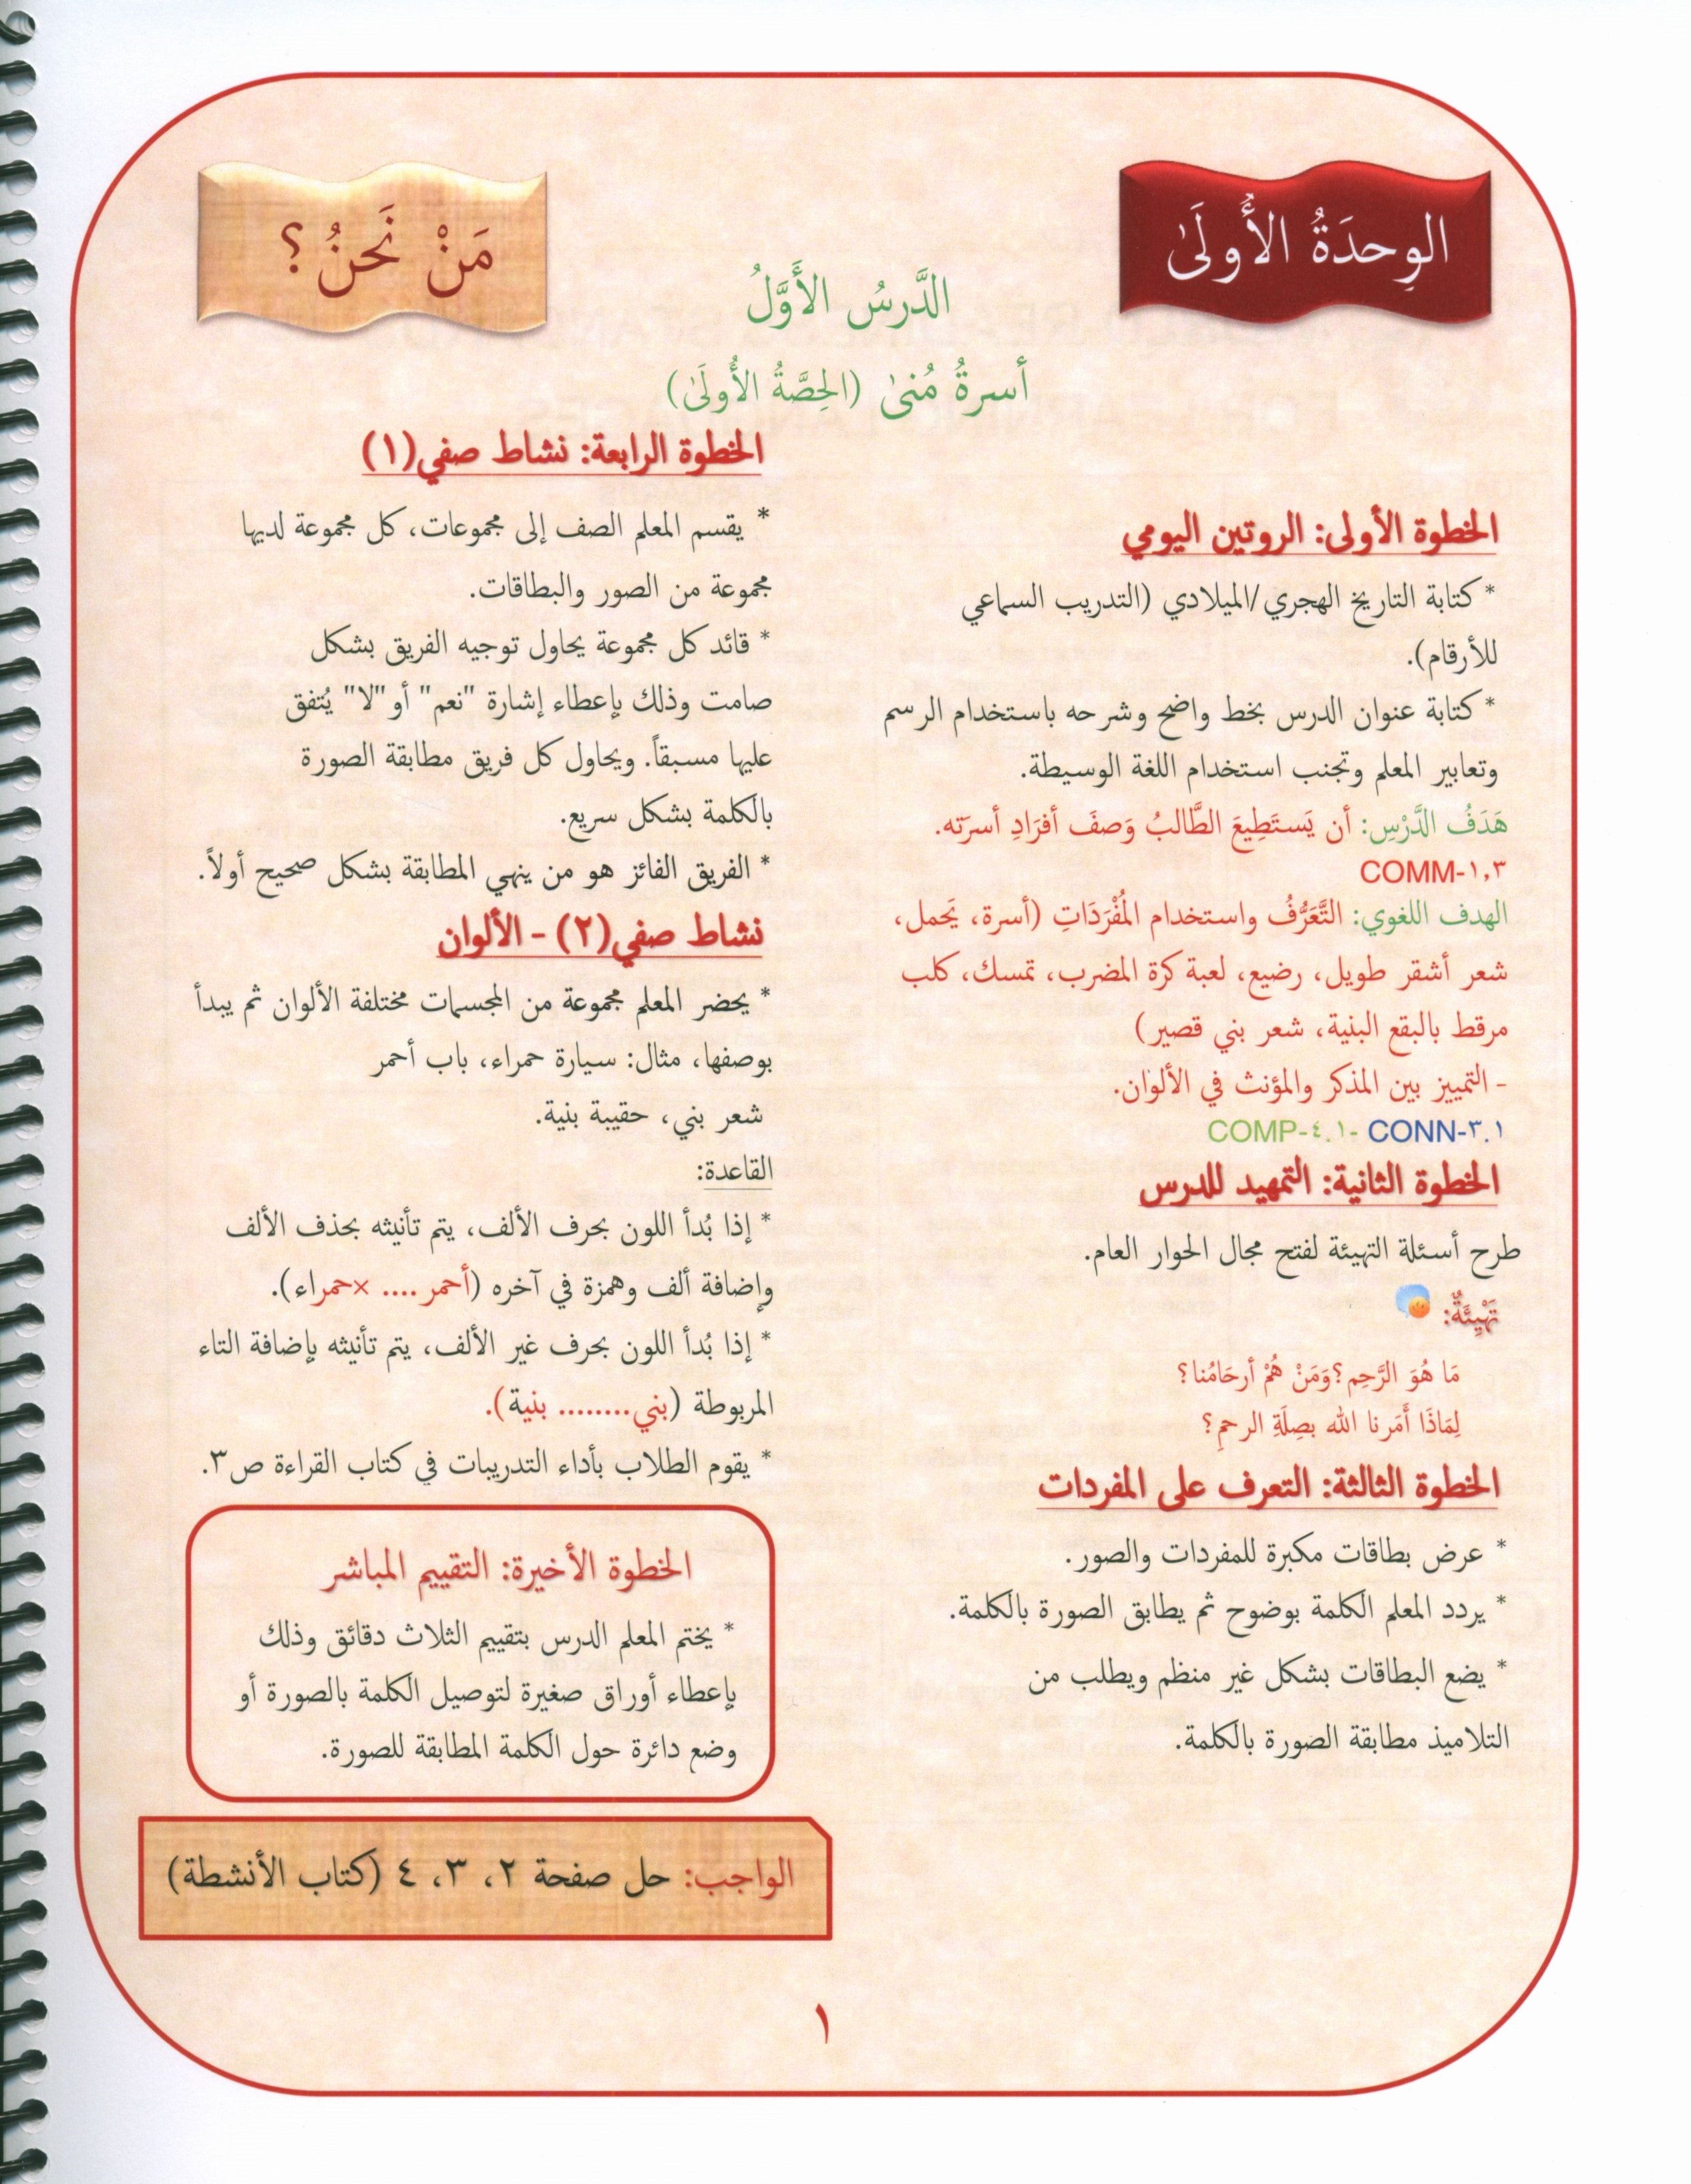 الوِحدَةُ الأُولَىٰ
مَنْ نَحنُ؟
الدَّرسُ الأَوَّلُ
أسرةُ مُنىٰ (الحِصَّةُ الأُولَىٰ)
الخطوة الأولى: الروتين اليومي
* كتابة التاريخ الهجري/الميلادي (التدريب السماعي
للأرقام).
* كتابة عنوان الدرس بخط واضح وشرحه باستخدام الرسم
وتعابير المعلم وتجنب استخدام اللغة الوسيطة.
هَدَفُ الدَّرْسِ: أن يَستَطِيعَ الطَّالبُ وَصفَ أفرَادِ أسرَته.
COMM-١,٣
الهدف اللغوي: التَّعَرُّفُ واستخدام المُفْرَدَاتِ (أسرة، يَحمل،
شعر أشقر طويل، رضيع، لعبة كرة المضرب، تمسك، كلب
مرقط بالبقع البنية، شعر بني قصير)
- التمييز بين المذكر والمؤنث في الألوان.
COMP-٤.١- CONN-٣.١
الخطوة الثانية: التمهيد للدرس
طرح أسئلة التهيئة لفتح مجال الحوار العام.
تَهْيِئَةٌ:
مَا هُوَ الرَّحِم؟وَمَنْ هُمْ أرحَامُنا؟
لِمَاذَا أَمَرنا الله بصِلَةِ الرحمِ؟
الخطوة الثالثة: التعرف على المفردات
* عرض بطاقات مكبرة للمفردات والصور.
* يردد المعلم الكلمة بوضوح ثم يطابق الصورة بالكلمة.
* يضع البطاقات بشكل غير منظم ويطلب من
التلاميذ مطابقة الصورة بالكلمة.
الخطوة الرابعة: نشاط صفي(١)
* يقسم المعلم الصف إلى مجموعات، كل مجموعة لديها
مجموعة من الصور والبطاقات.
* قائد كل مجموعة يحاول توجيه الفريق بشكل
صامت وذلك بإعطاء إشارة "نعم" أو "لا" يُتفق
عليها مسبقاً. ويحاول كل فريق مطابقة الصورة
بالكلمة بشكل سريع.
* الفريق الفائز هو من ينهي المطابقة بشكل صحيح أولاً.
نشاط صفي(٢) - الألوان
* يحضر المعلم مجموعة من المجسمات مختلفة الألوان ثم يبدأ
بوصفها، مثال: سيارة حمراء، باب أحمر
شعر بني، حقيبة بنية.
القاعدة:
* إذا بُدأ اللون بحرف الألف، يتم تأنيثه بحذف الألف
وإضافة ألف وهمزة في آخره (أحمر .... ×حمراء).
* إذا بُدأ اللون بحرف غير الألف، يتم تأنيثه بإضافة التاء
المربوطة (بني........ بنية).
* يقوم الطلاب بأداء التدريبات في كتاب القراءة ص٣.
الخطوة الأخيرة: التقييم المباشر
* يختم المعلم الدرس بتقييم الثلاث دقائق وذلك
بإعطاء أوراق صغيرة لتوصيل الكلمة بالصورة أو
وضع دائرة حول الكلمة المطابقة للصورة.
الواجب: حل صفحة ٢، ٣، ٤ (كتاب الأنشطة)
١